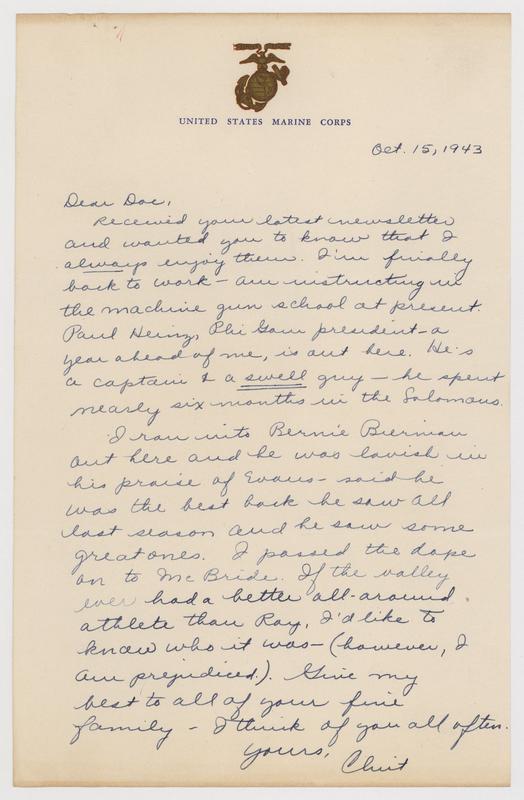 UNITED STATES MARINE CORPS
Oct. 15, 1943
Dear Doc,
Received your latest newsletter
and wanted you to know that I
always enjoy them. I'm finally
back to work – am instructing in
the machine gun school at present.
Paul Heinz, Phi Gam president – a
year ahead of me, is out here. He's
a captain & a swell guy – he spent
nearly six months in the Solomons.
I ran into Bernie Bierman
out here and he was lavish in
his praise of Evans – said he
was the best back he saw all
last season and he saw some
great ones. I passed the dope
on to McBride. If the valley
ever had a better all-around
athlete than Ray, I'd like to
know who it was – (however, I
am prejudiced.). Give my
best to all of your fine
family – I think of you all often.
Yours,
Clint